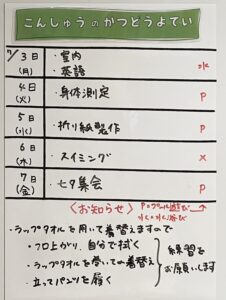 こんしゅうのかつどうよてい
7/3日(月) ・室内 ・英語 水
4日(火) ・身体測定 P
5日(水) ・折り紙製作 P
6日(木) ・スイミング ×
7日(金) ・七夕集会 P
〈お知らせ〉 P=プール遊び
水=水遊び
・ラップタオルを用いて着替えますので
・プロ上がり、自分で拭く
・ラップタオルを巻いての着替え
・立ってパンツを履く
練習を
お願いします